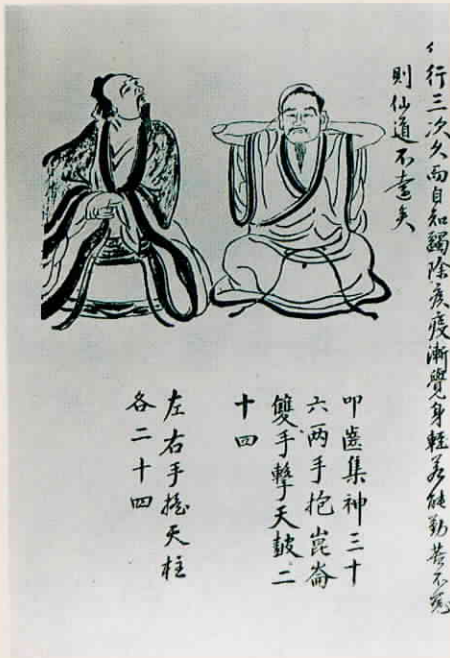 行三次久而自知蠲除疾疫漸覺身輕若能勤苦不寃
則仙道不遠矣
叩齒集神三十
六兩手抱崑崙
雙手擊天鼓二
十四
左右手搖天柱
各二十四